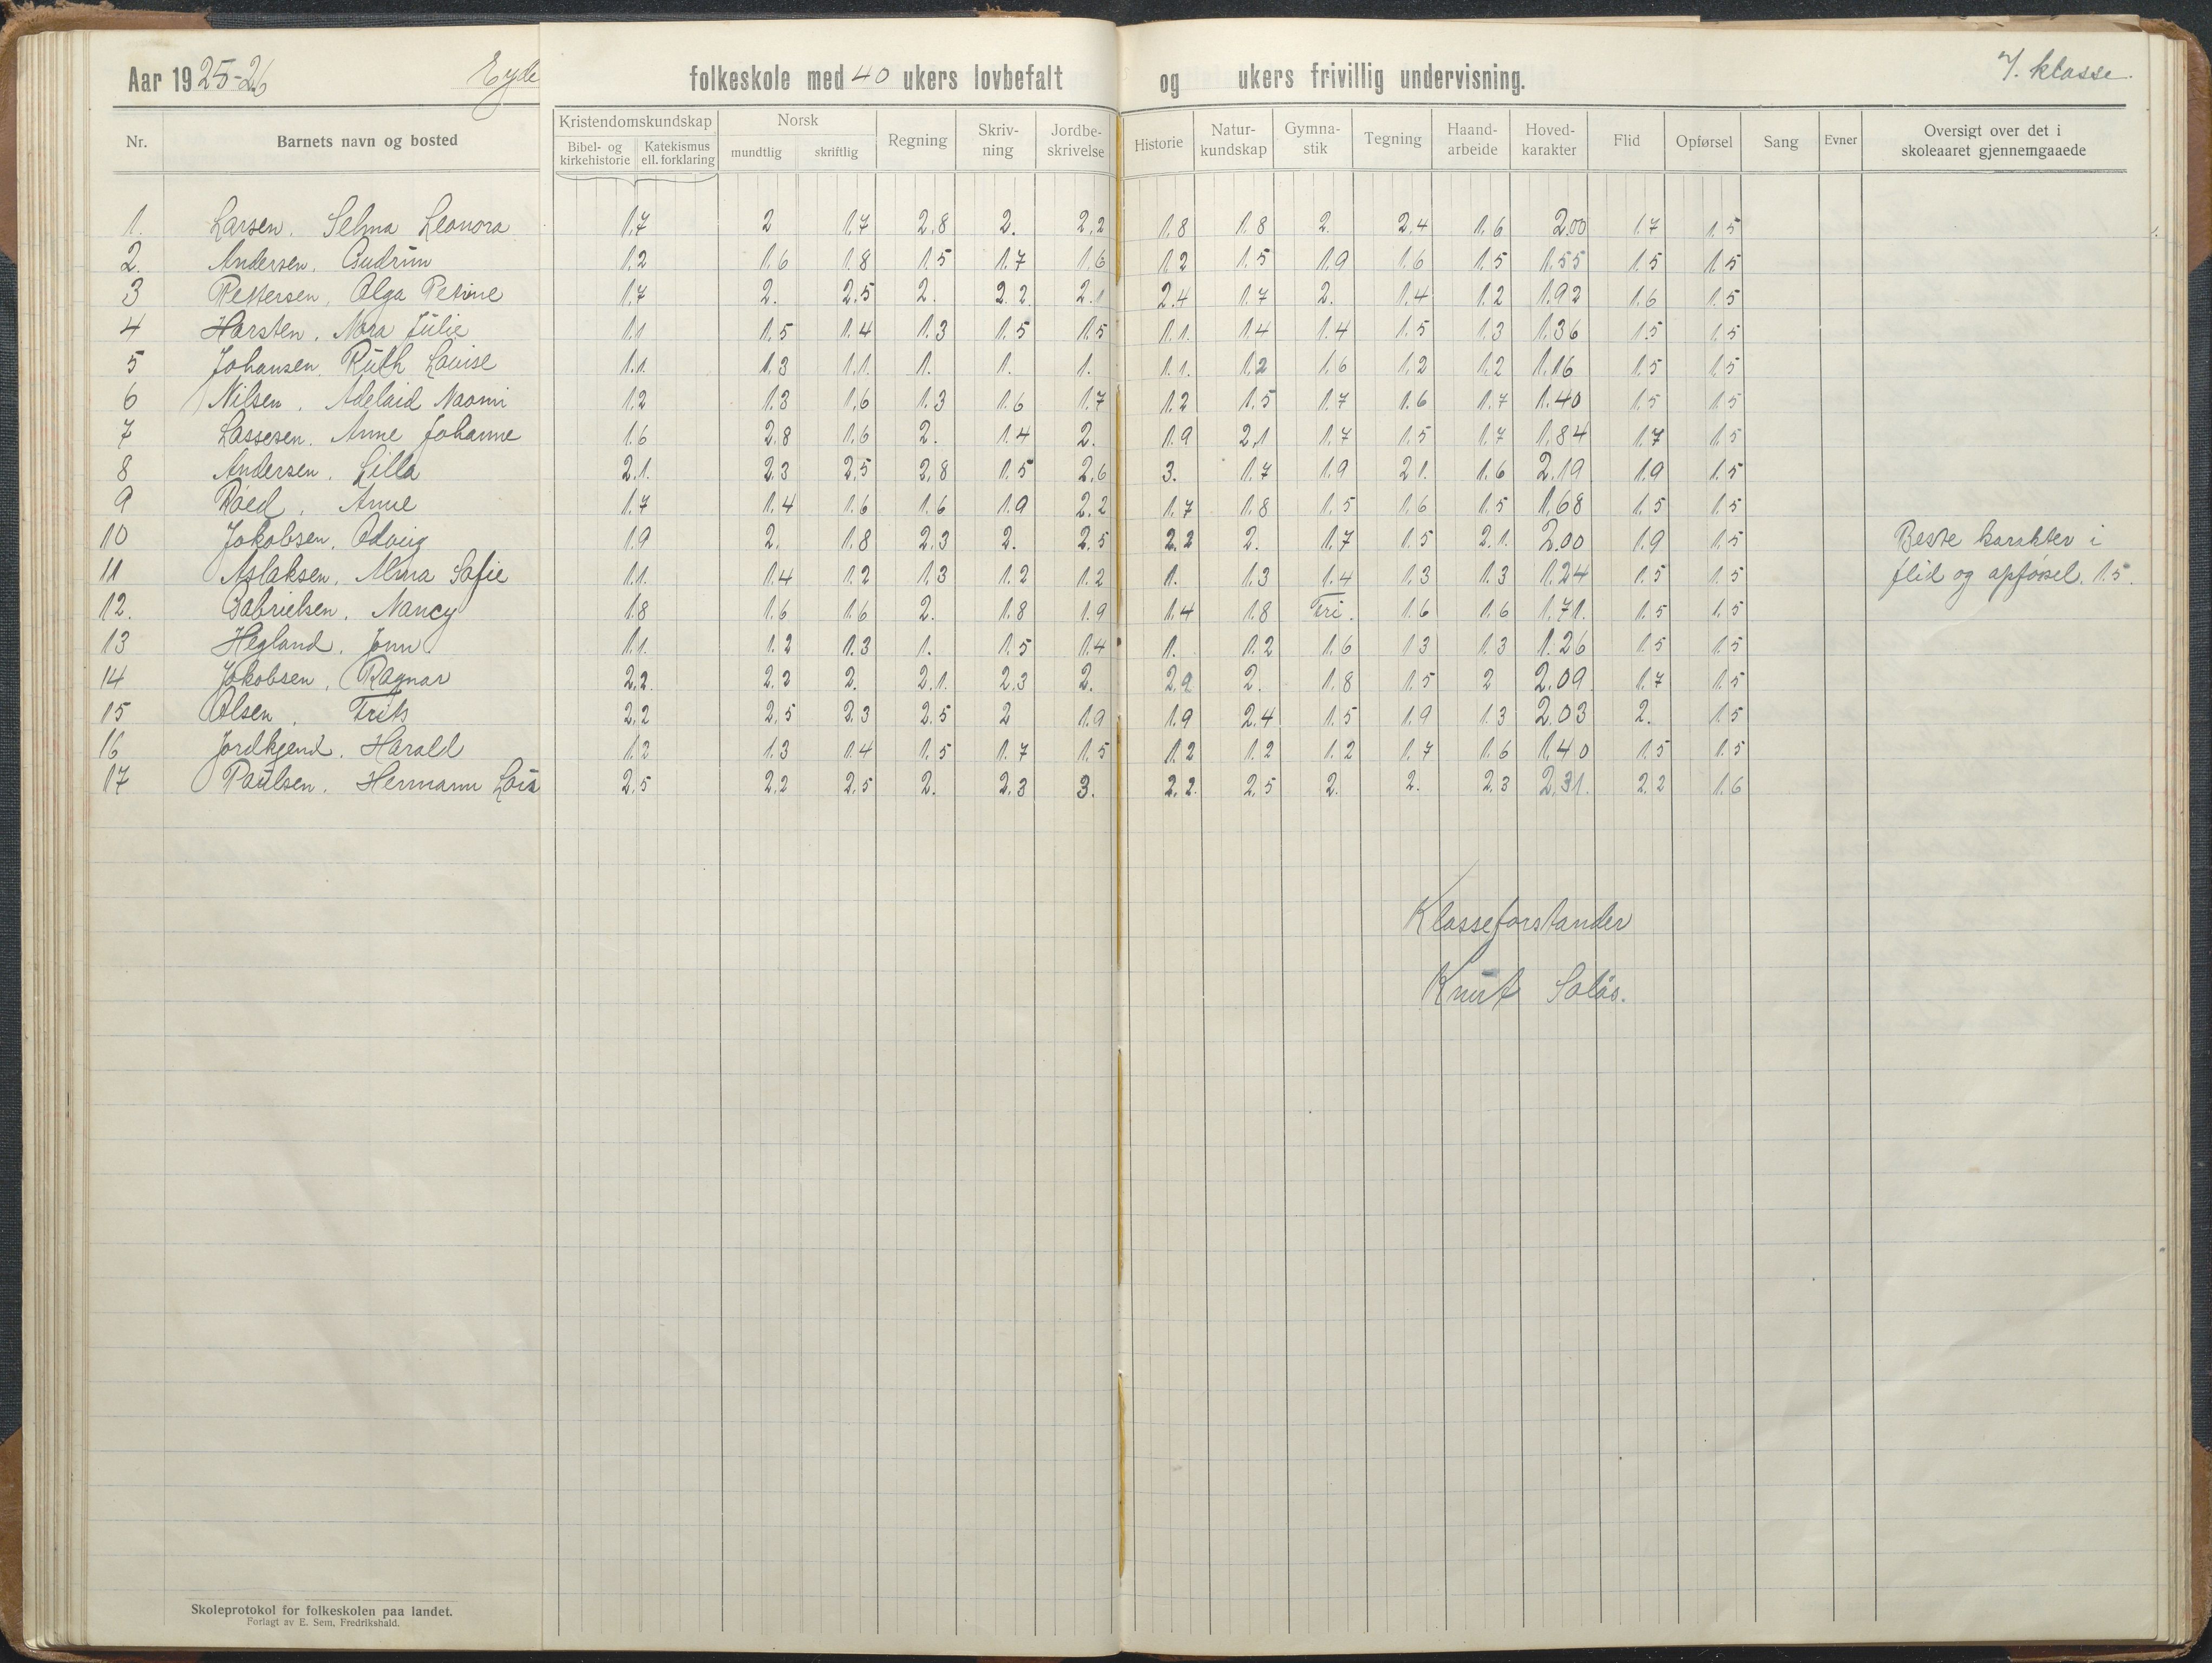 Aar 1925-26 Eyde folkeskole med 40 ukers lovbefalt og ukers frivillig undervisning. 7. klasse.
Nr. Barnets navn og bosted Kristendomskundskap Bibel- og kirkehistorie Katekismus ell. forklaring Norsk mundtlig skriftlig Regning Skriv-ning Jordbe-skrivelse Historie Natur-kundskap Gymna-stik Tegning Haand-arbeide Hoved-karakter Flid Opførsel Sang Evner Oversigt over det i skoleaaret gjennemgaaede
1. Larsen, Selma Leonora 1.7 2 1.7 2.8 2. 2.2 1.8 1.8 2. 2.4 1.6 2.00 1.7 1.5
2. Andersen, Gudrun 1.2 1.6 1.8 1.5 1.7 1.6 1.2 1.5 1.9 1.6 1.5 1.55 1.5 1.5
3 Pettersen, Olga Petine 1.7 2. 2.5 2. 2.2 2.1 2.4 1.7 2. 1.4 1.2 1.92 1.6 1.5
4 Harsten, Nora Julie 1.1 1.5 1.4 1.3 1.5 1.5 1.1. 1.4 1.4 1.5 1.3 1.36 1.5 1.5
5 Johansen, Ruth Lovise 1.1. 1.3 1.1. 1. 1. 1. 1.1. 1.2 1.6 1.2 1.2 1.16 1.5 1.5
6 Nilsen, Adelaid Naomi 1.2 1.3 1.6 1.3 1.6 1.7 1.2 1.5 1.7 1.6 1.7 1.40 1.5 1.5
7 Lassesen, Anne Johanne 1.6 2.8 1.6 2. 1.4 2. 1.9 2.1 1.7 1.5 1.7 1.84 1.7 1.5
8 Andersen, Lilla 2.1. 2.3 2.5 2.8 1.5 2.6 3. 1.7 1.9 2.1. 1.6 2.19 1.9 1.5
9 Röed, Anne 1.7 1.4 1.6 1.6 1.9 2.2 1.7 1.8 1.5 1.6 1.5 1.68 1.5 1.5
10 Jakobsen, Odveig 1.9 2. 1.8 2.3 2. 2.5 2.2 2. 1.7 1.5 2.1. 2.00 1.9 1.5 Beste karakter i
11 Aslaksen, Alma Sofie 1.1. 1.4 1.2 1.3 1.2 1.2 1. 1.3 1.4 1.3 1.3 1.24 1.5 1.5 flid og opførsel. 1.5.
12. Gabrielsen, Nancy 1.8 1.6 1.6 2. 1.8 1.9 1.4 1.8 Fri. 1.6 1.6 1.71. 1.5 1.5
13 Hegland, Jonn 1.1. 1.2 1.3 1. 1.5 1.4 1. 1.2 1.6 1.3 1.3 1.26 1.5 1.5
14 Jakobsen, Ragnar 2.2. 2.2 2. 2.1. 2.3 2. 2.2 2. 1.8 1.5 2 2.09 1.7 1.5
15 Olsen, Frits 2.2 2.5 2.3 2.5 2 1.9 1.9 2.4 1.5 1.9 1.3 2.03 2. 1.5
16 Jordkjend, Harald 1.2 1.3 1.4 1.5 1.7 1.5 1.2 1.2 1.2 1.7 1.6 1.40 1.5 1.5
17 Paulsen, Hermann 2.5 2.2 2.5 2. 2.3 3. 2.2. 2.5 2. 2. 2.3 2.31. 2.2 1.6
Klasseforstander
Knut Solås.
Skoleprotokol for folkeskolen paa landet.
Forlagt av E. Sem, Fredrikshald.